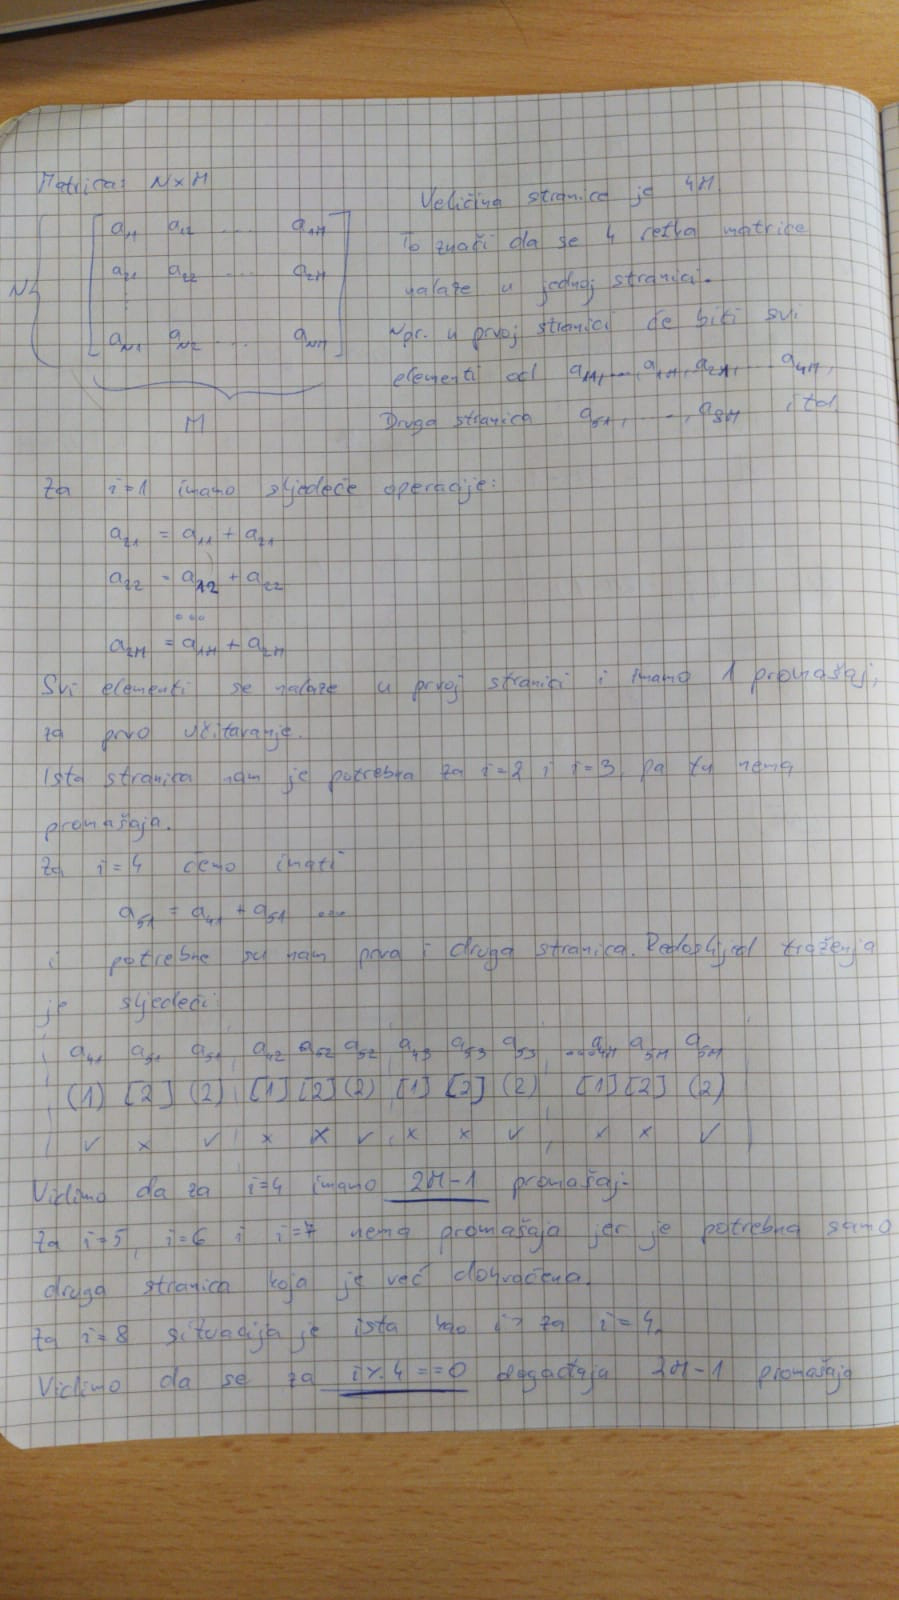 Matrica: N×M
Veličina stranice je 4M
a11 a12 .... a1M
To znači da se 4 retka matrice
a21 a22 .... a2M
nalaze u jednoj stranici.
N
aN1 aN2 ... aNM
Npr. u prvoj stranici će biti svi
elementi od a11,...,a1M,a21,... a4M,
M
Druga stranica a51, ..., a8M itd
Za i=1 imamo sljedeće operacije:
a21 = a11 + a21
a22 = a12 + a22
...
a2M = a1M + a2M
Svi elementi se nalaze u prvoj stranici i imamo 1 promašaj,
za prvo učitavanje.
Ista stranica nam je potrebna za i=2 i i=3, pa tu nema
promašaja.
Za i=4 ćemo imati
a51 = a41 + a51 ...
i potrebne su nam prva i druga stranica. Redoslijed traženja
je sljedeći:
a41 a51 a51 a42 a52 a52 a43 a53 a53 ... a4M a5M a5M
(1) [2] (2) [1] [2] (2) [1] [2] (2) [1] [2] (2)
✓ x ✓ x x ✓ x x ✓ x x ✓
Vidimo da za i=4 imamo 2M-1 promašaj.
Za i=5, i=6 i i=7 nema promašaja jer je potrebna samo
druga stranica koja je već dohvaćena.
Za i=8 situacija je ista kao i za i=4.
Vidimo da se za i%4==0 događaja 2M-1 promašaja